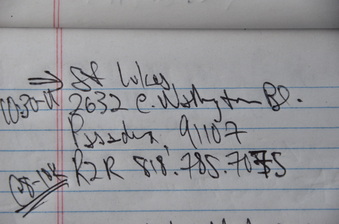 St Lukes
10:30-11 2632 E. Washington Bl.
Pasadena, 91107
R2R 818.785.7075